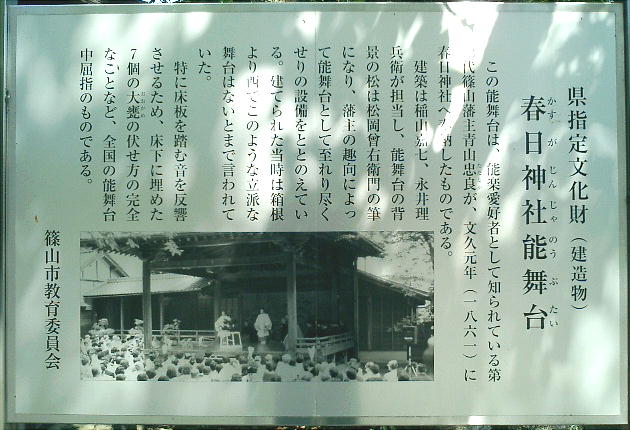 県指定文化財（建造物）
春日神社能舞台
かすがじんじゃのうぶたい
この能舞台は、能楽愛好者として知られている第
代篠山藩主青山忠良が、文久元年（一八六一）に
春日神社へ 納したものである。
建築は稲山嘉七、永井理
兵衛が担当し、能舞台の背
景の松は松岡曾右衛門の筆
になり、藩主の趣向によっ
て能舞台として至れり尽く
せりの設備をととのえてい
る。建てられた当時は箱根
より西でこのような立派な
舞台はないとまで言われて
いた。
特に床板を踏む音を反響
させるため、床下に埋めた
7個の大甕の伏せ方の完全
おおがめ
なことなど、全国の能舞台
中屈指のものである。
篠山市教育委員会